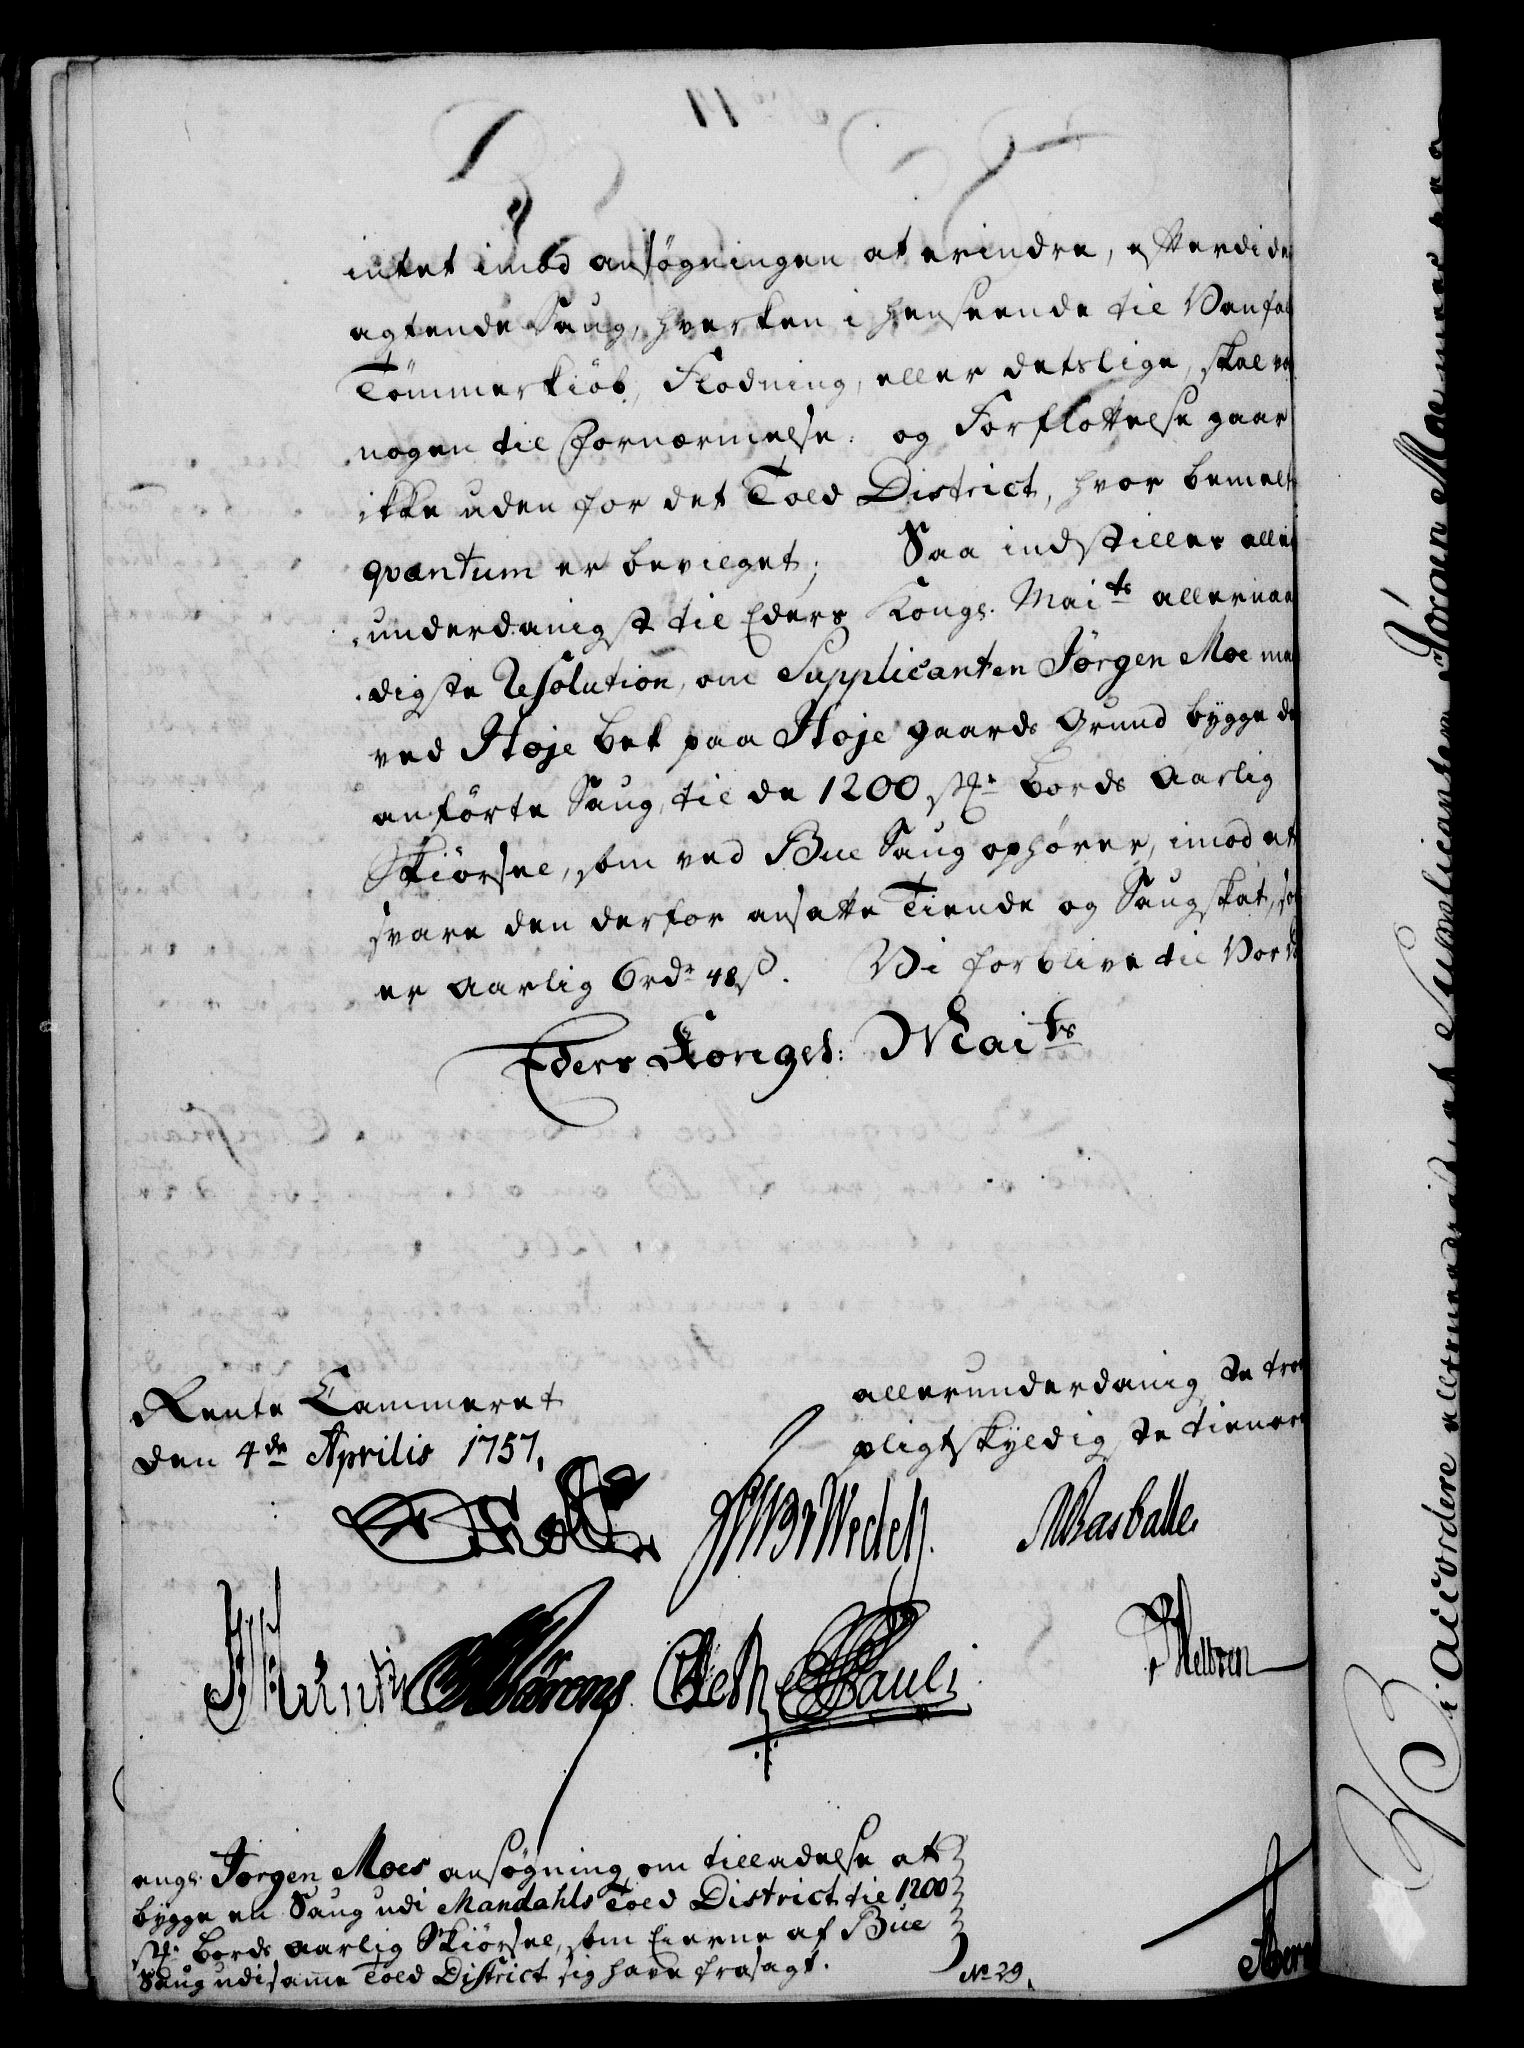 intet imod ansøgningen at erindre, efterdi de
agtende Saug, hverken i henseende til Vanfal
Tömmerkiöb, Flodning, eller detslige, skal væ
nogen til fornærmelse. og Forflottelse gaar
ikke uden for det Told District, hvor bemelte
qvantum er bevilget; Saa indstilles aller
underdanigst til Eders Kongl. Maits allernaa
digste Resolution, om Supplicanten Jörgen Moe maa
ved Høje bek paa Høje gaards Grund bygge de
anförte Saug, til de 1200 st: bords Aarlig
Skiörsel, som ved Bue Saug ophører, imod at
svare den derfor ansatte Tiende og Saugskat, so
er Aarlig 6 rd: 48 s. Vi forblive til Vor D
Eders Kongel: Maits
Rente Cammeret
den 4de Aprilis 1757.
allerunderdanigste tro
pligtskyldigste tienere
Wedell
Rasballe
Pauli
ang: Jørgen Moes ansøgning om tilladelse at
bygge en Saug udi Mandahls Told District til 1200
st: bords aarlig Skiörsel, som Eierne af Bue
Saug udi samme Told District sig have frasagt.
No 29.